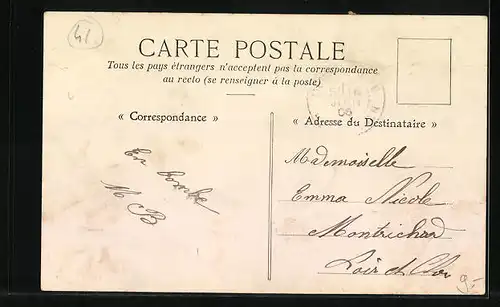 41.
CARTE POSTALE
Tous les pays étrangers n'acceptent pas la correspondance
au recto (se renseigner à la poste)
« Correspondance »
« Adresse du Destinataire »
M B
Mademoiselle
Emma Nicole
Montrichard
Loir et Cher